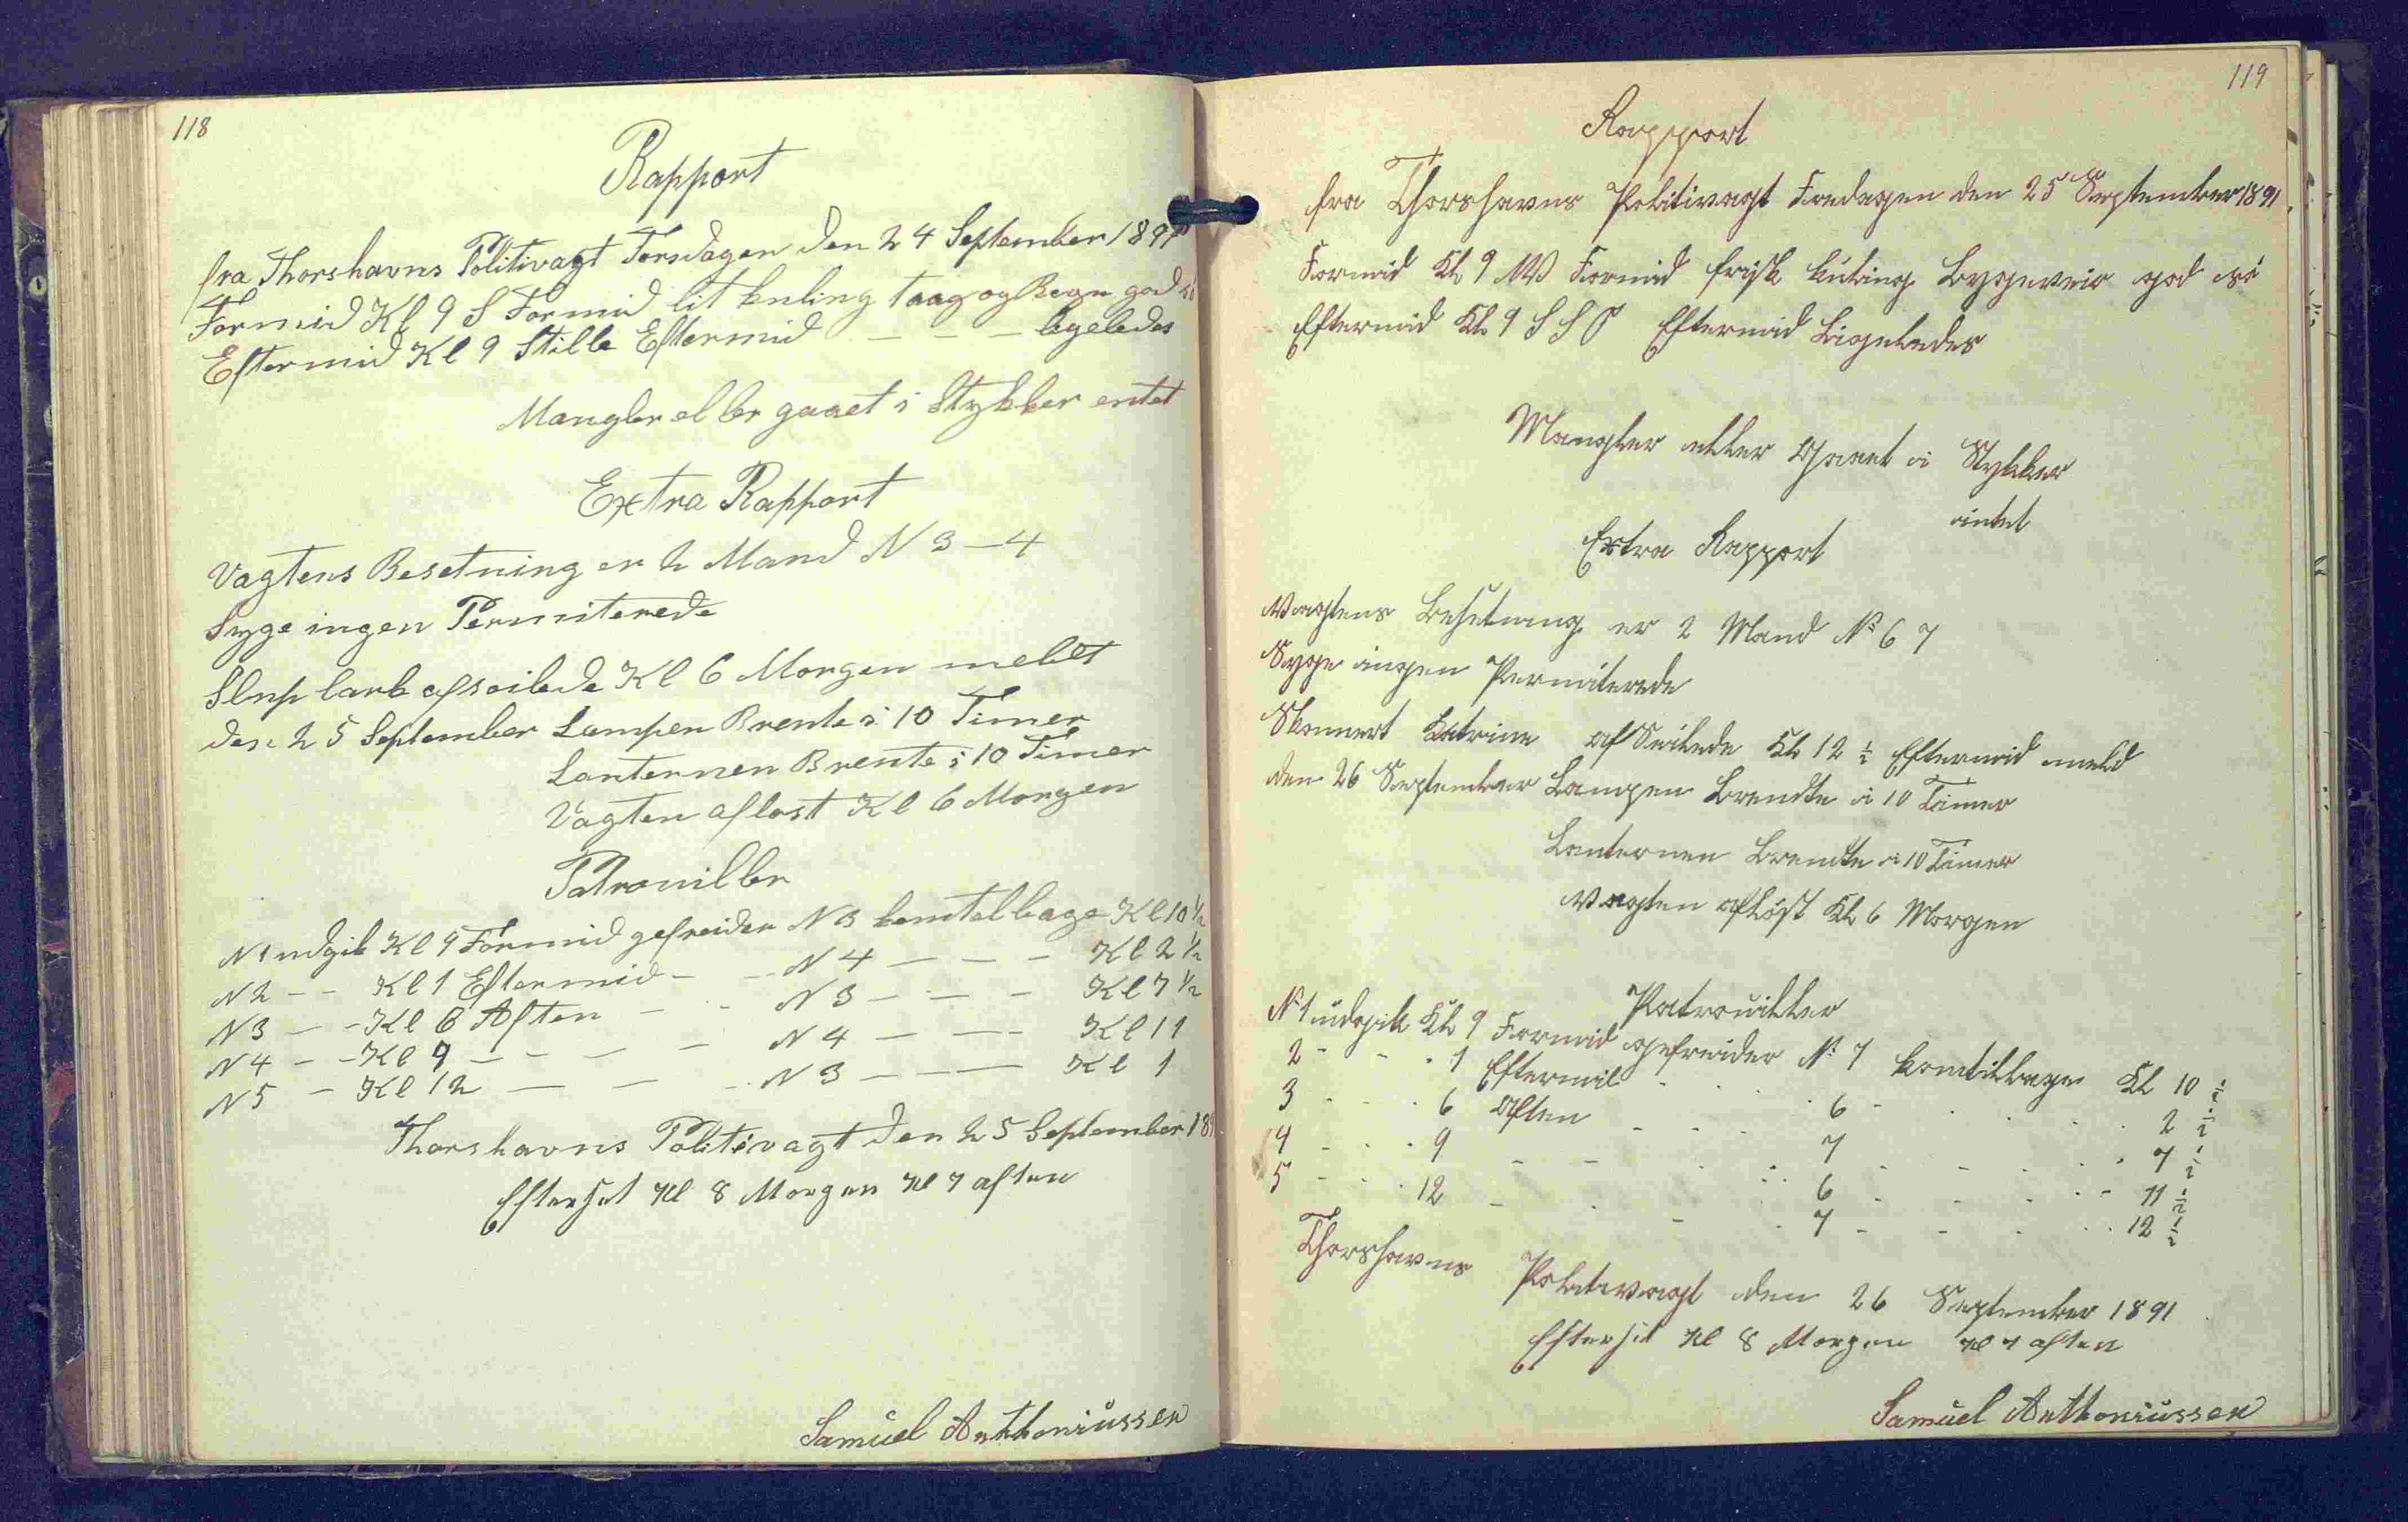 118
Rapport
fra Thorshavns Politivagt Torsdagen den 24 September 1891
Formid Kl 9 S Formid lit kuling taag og Regn god
Eftermid Kl 9 Stille Eftermid — — — legeledes
Mangler eller gaaet i Stykker entet
Extra Rapport
Vagtens Besetning er 2 Mand N 3 – 4
Syge ingen Permiterede
Slup larb afseilede Kl 6 Morgen meldt
den 25 September Lampen Brente i 10 Timer
Lanternen Brente i 10 Timer
Vagten aflost Kl 6 Morgen
Patrouiller
N 1 udgik Kl 9 Formid gefreider N 3 komtelbage Kl 10 1/2
N 2 – – Kl 1 Eftermid – – N 4 — — — Kl 2 1/2
N 3 – – Kl 6 Aften – – N 3 — — — Kl 7 1/2
N 4 – – Kl 9 — — — — N 4 — — — Kl 11
N 5 – Kl 12 — — — N 3 — — — Kl 1
Thorshavns Politivagt den 25 September 18
Efterset Kl 8 Morgen Kl 7 aften
Samuel Anthoniussen
119
Rapport
fra Thorshavns Politivagt Fredagen den 25 September 1891
Formid Kl 9 NV Formid frisk kuling Bygeveir god
Eftermid Kl 9 S S O Eftermid Ligeledes
Mangler eller Gaaet i Stykker
intet
Extra Rapport
Vagtens Besetning er 2 Mand No 6 7
Syge ingen Permiterede
Skonnert Katrine af Seilede Kl 12 1/2 Eftermid meld
den 26 September Lampen Brendte i 10 Timer
Lanternen Brendte i 10 Timer
Vagten afløst Kl 6 Morgen
Patrouiller
No 1 udgik Kl 9 Formid gefreider No 7 komtilbage Kl 10 1/2
2 - - - 1 Eftermil - - - 6 - - - 2 1/2
3 - - - 6 Aften - - - 7 - - - 7 1/2
4 - - - 9 - - - 6 - - - 11 1/2
5 - - - 12 - - - 7 - - - 12 1/2
Thorshavns Politivagt den 26 September 1891
Efterset Kl 8 Morgen Kl 7 aften
Samuel Anthoniussen